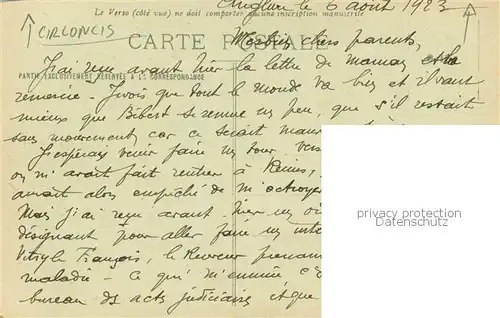 Anglure le 6 août 1923
Le Verso (côté vue) ne doit comporter aucune inscription manuscrite
CIRCONCIS
CARTE POSTALE
chers parents,
J'ai reçu avant hier la lettre de maman et la
PARTIE EXCLUSIVEMENT RÉSERVÉE A LA CORRESPONDANCE
remercie. Je vois que tout le monde va bien et il vaut
mieux que Bibert se remue un peu, que s'il restait
sans mouvement, car ce serait mauv
J'espérais venir faire un tour vers
on m'avait fait rentrer à Reims,
aurait alors empêché de m'octroyer
Mais j'ai reçu avant hier un
désignant pour aller faire un inté
Vitry le François, le Receveur prenant
maladie - ce qui m'ennuie c'e
bureau des acts judiciaires et que
privacy protection
Datenschutz